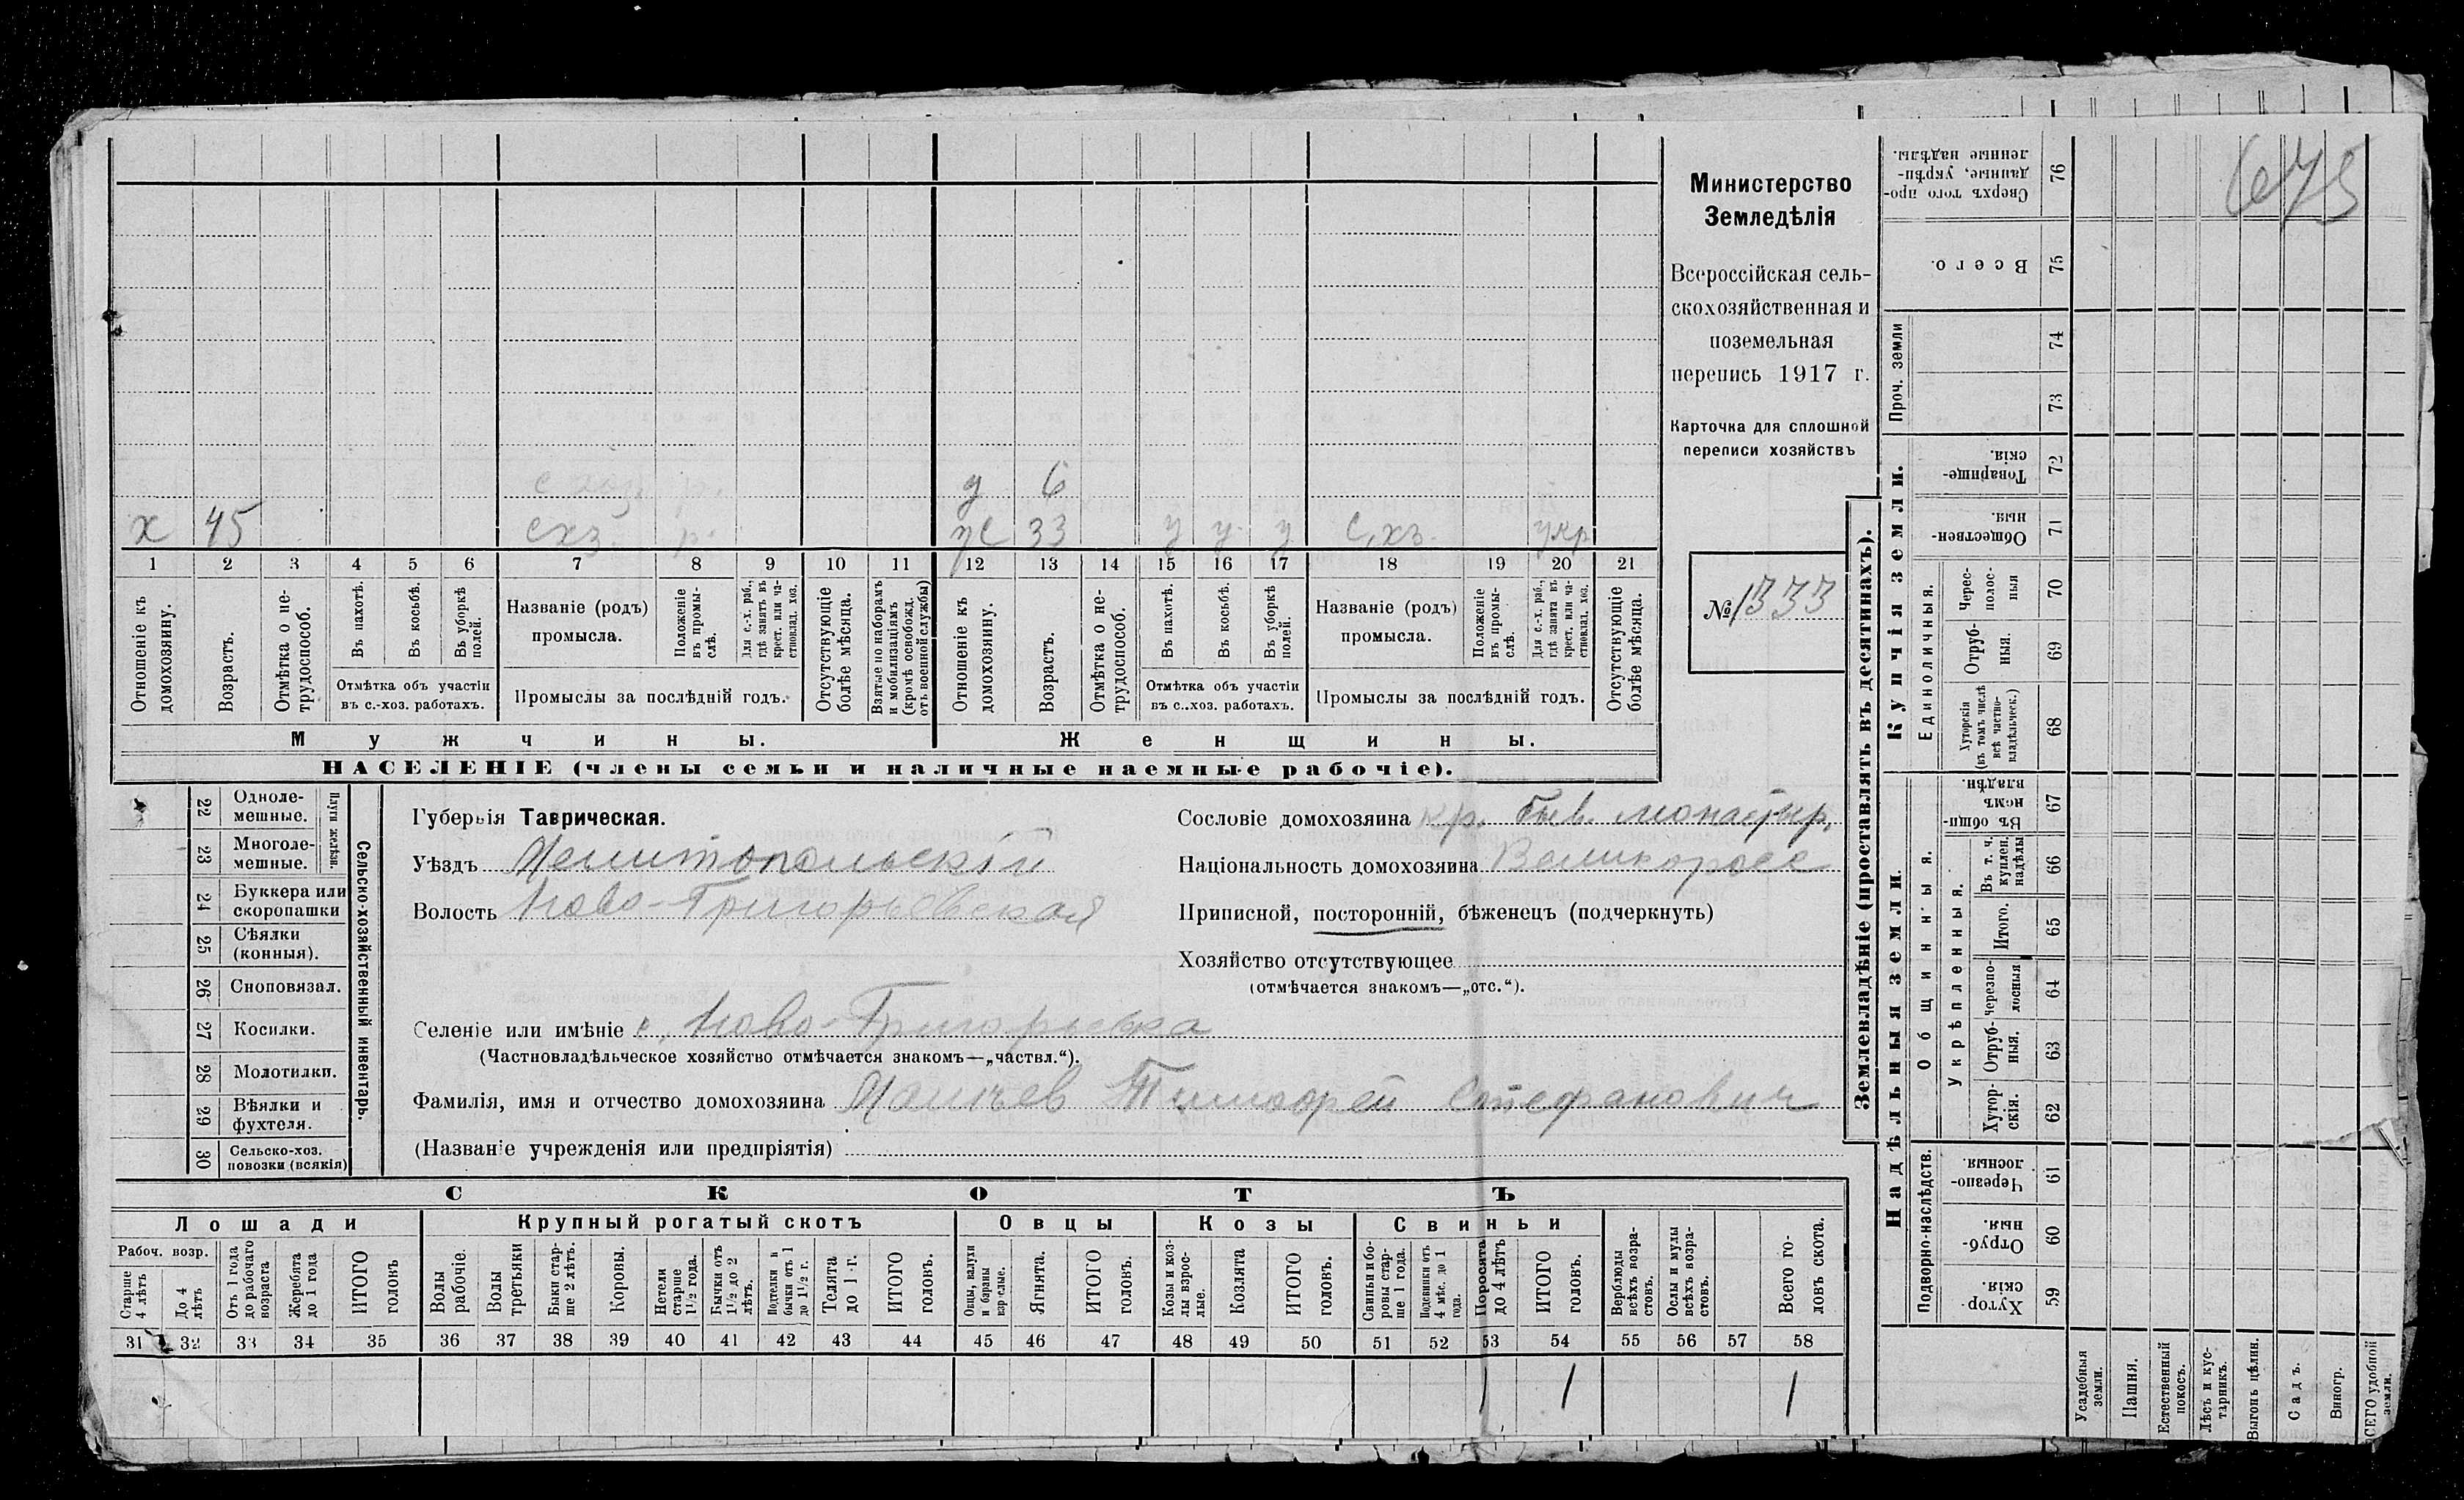 675
Министерство
Земледѣлія
Всероссійская сель-
скохозяйственная и
поземельная
перепись 1917 г.
Карточка для сплошной
переписи хозяйствъ
№ 1333
с хоз. р. д 6
х 45 схз. р. ж 33 у у у с, хз. укр
1 2 3 4 5 6 7 8 9 10 11 12 13 14 15 16 17 18 19 20 21
Отношеніе къ домохозяину.
Возрастъ.
Отмѣтка о не-трудоспособ.
Въ пахотѣ.
Въ косьбѣ.
Въ уборкѣ полей.
Отмѣтка объ участіи
въ с.-хоз. работахъ.
Названіе (родъ)
промысла.
Положеніе въ промы-слѣ.
Для с.-х. раб., гдѣ занятъ въ крест. или ча-стновлад. хоз.
Промыслы за послѣдній годъ.
Отсутствующіе болѣе мѣсяца.
Взятые по наборамъ и мобилизаціямъ (кромѣ освобожд. отъ военной службы)
Отношеніе къ домохозяину.
Возрастъ.
Отмѣтка о не-трудоспособ.
Въ пахотѣ.
Въ косьбѣ.
Въ уборкѣ полей.
Отмѣтка объ участіи
въ с.-хоз. работахъ.
Названіе (родъ)
промысла.
Положеніе въ промы-слѣ.
Для с.-х. раб., гдѣ занята въ крест. или ча-стновлад. хоз.
Промыслы за послѣдній годъ.
Отсутствующіе болѣе мѣсяца.
Мужчины.
Женщины.
НАСЕЛЕНІЕ (члены семьи и наличные наемные рабочіе).
22 Одноле-мешные.
23 Многоле-мешные.
Плуги желѣзн.
24 Буккера или скоропашки
25 Сѣялки (конныя).
26 Сноповязал.
27 Косилки.
28 Молотилки.
29 Вѣялки и фухтеля.
30 Сельско-хоз. повозки (всякія)
Сельско-хозяйственный инвентарь.
Губернія Таврическая.
Уѣздъ Мелитопольскій
Волость Ново-Григорьевская
Селеніе или имѣніе с. Ново-Григорьевка
(Частновладѣльческое хозяйство отмѣчается знакомъ—„частвл.“).
Фамилія, имя и отчество домохозяина Тимофей Стефанович
(Названіе учрежденія или предпріятія)
Сословіе домохозяина кр. быв. монастыр.
Національность домохозяина Великоросс
Приписной, посторонній, бѣженецъ (подчеркнуть)
Хозяйство отсутствующее
(отмѣчается знакомъ—„отс.“).
СКОТЪ
Лошади
Крупный рогатый скотъ
Овцы
Козы
Свиньи
Рабоч. возр.
Старше 4 лѣтъ
До 4 лѣтъ
Отъ 1 года до рабочаго возраста
Жеребята до 1 года
ИТОГО головъ
Волы рабочіе.
Волы третьяки
Быки стар-ше 2 лѣтъ.
Коровы.
Нетели старше 1½ года.
Бычки отъ 1½ до 2 лѣтъ.
Подтелки и бычки отъ 1 до 1½ г.
Телята до 1 г.
ИТОГО головъ.
Овцы, валухи и бараны взрослые.
Ягнята.
ИТОГО головъ.
Козы и коз-лы взрос-лые.
Козлята
ИТОГО головъ.
Свиньи и бо-ровы стар-ше 1 года.
Подсвинки отъ 4 мѣс. до 1 года.
Поросята до 4 лѣтъ
ИТОГО головъ.
Верблюды всѣхъ возра-стовъ.
Ослы и мулы всѣхъ возра-стовъ.
Всего го-ловъ скота.
31 32 33 34 35 36 37 38 39 40 41 42 43 44 45 46 47 48 49 50 51 52 53 54 55 56 57 58
1 1 1
Землевладѣніе (проставлять въ десятинахъ).
Купчія земли.
Надѣльныя земли.
Сверхъ того про-данные, укрѣп-ленные надѣлы. 76
Всего. 75
Проч. земли
74
73
Товарище-скія. 72
Обществен-ныя. 71
Единоличныя.
Черес-полос-ныя 70
Отруб-ныя. 69
Хуторскія (въ томъ числѣ всѣ частно-владѣльческ.) 68
Общинныя.
Въ общи-номъ владѣн. 67
Укрѣпленныя.
Въ т. ч. куплен. надѣлы 66
Итого. 65
черезпо-лосныя 64
Отруб-ныя. 63
Хутор-скія. 62
Подворно-наслѣдств.
Черезпо-лосныя. 61
Отруб-ныя. 60
Хутор-скія. 59
Усадебныя земли.
Пашня.
Естественный покосъ.
Лѣсъ и кус-тарникъ.
Выгонъ цѣлин.
Садъ.
Виногр.
ВСЕГО удобной земли.